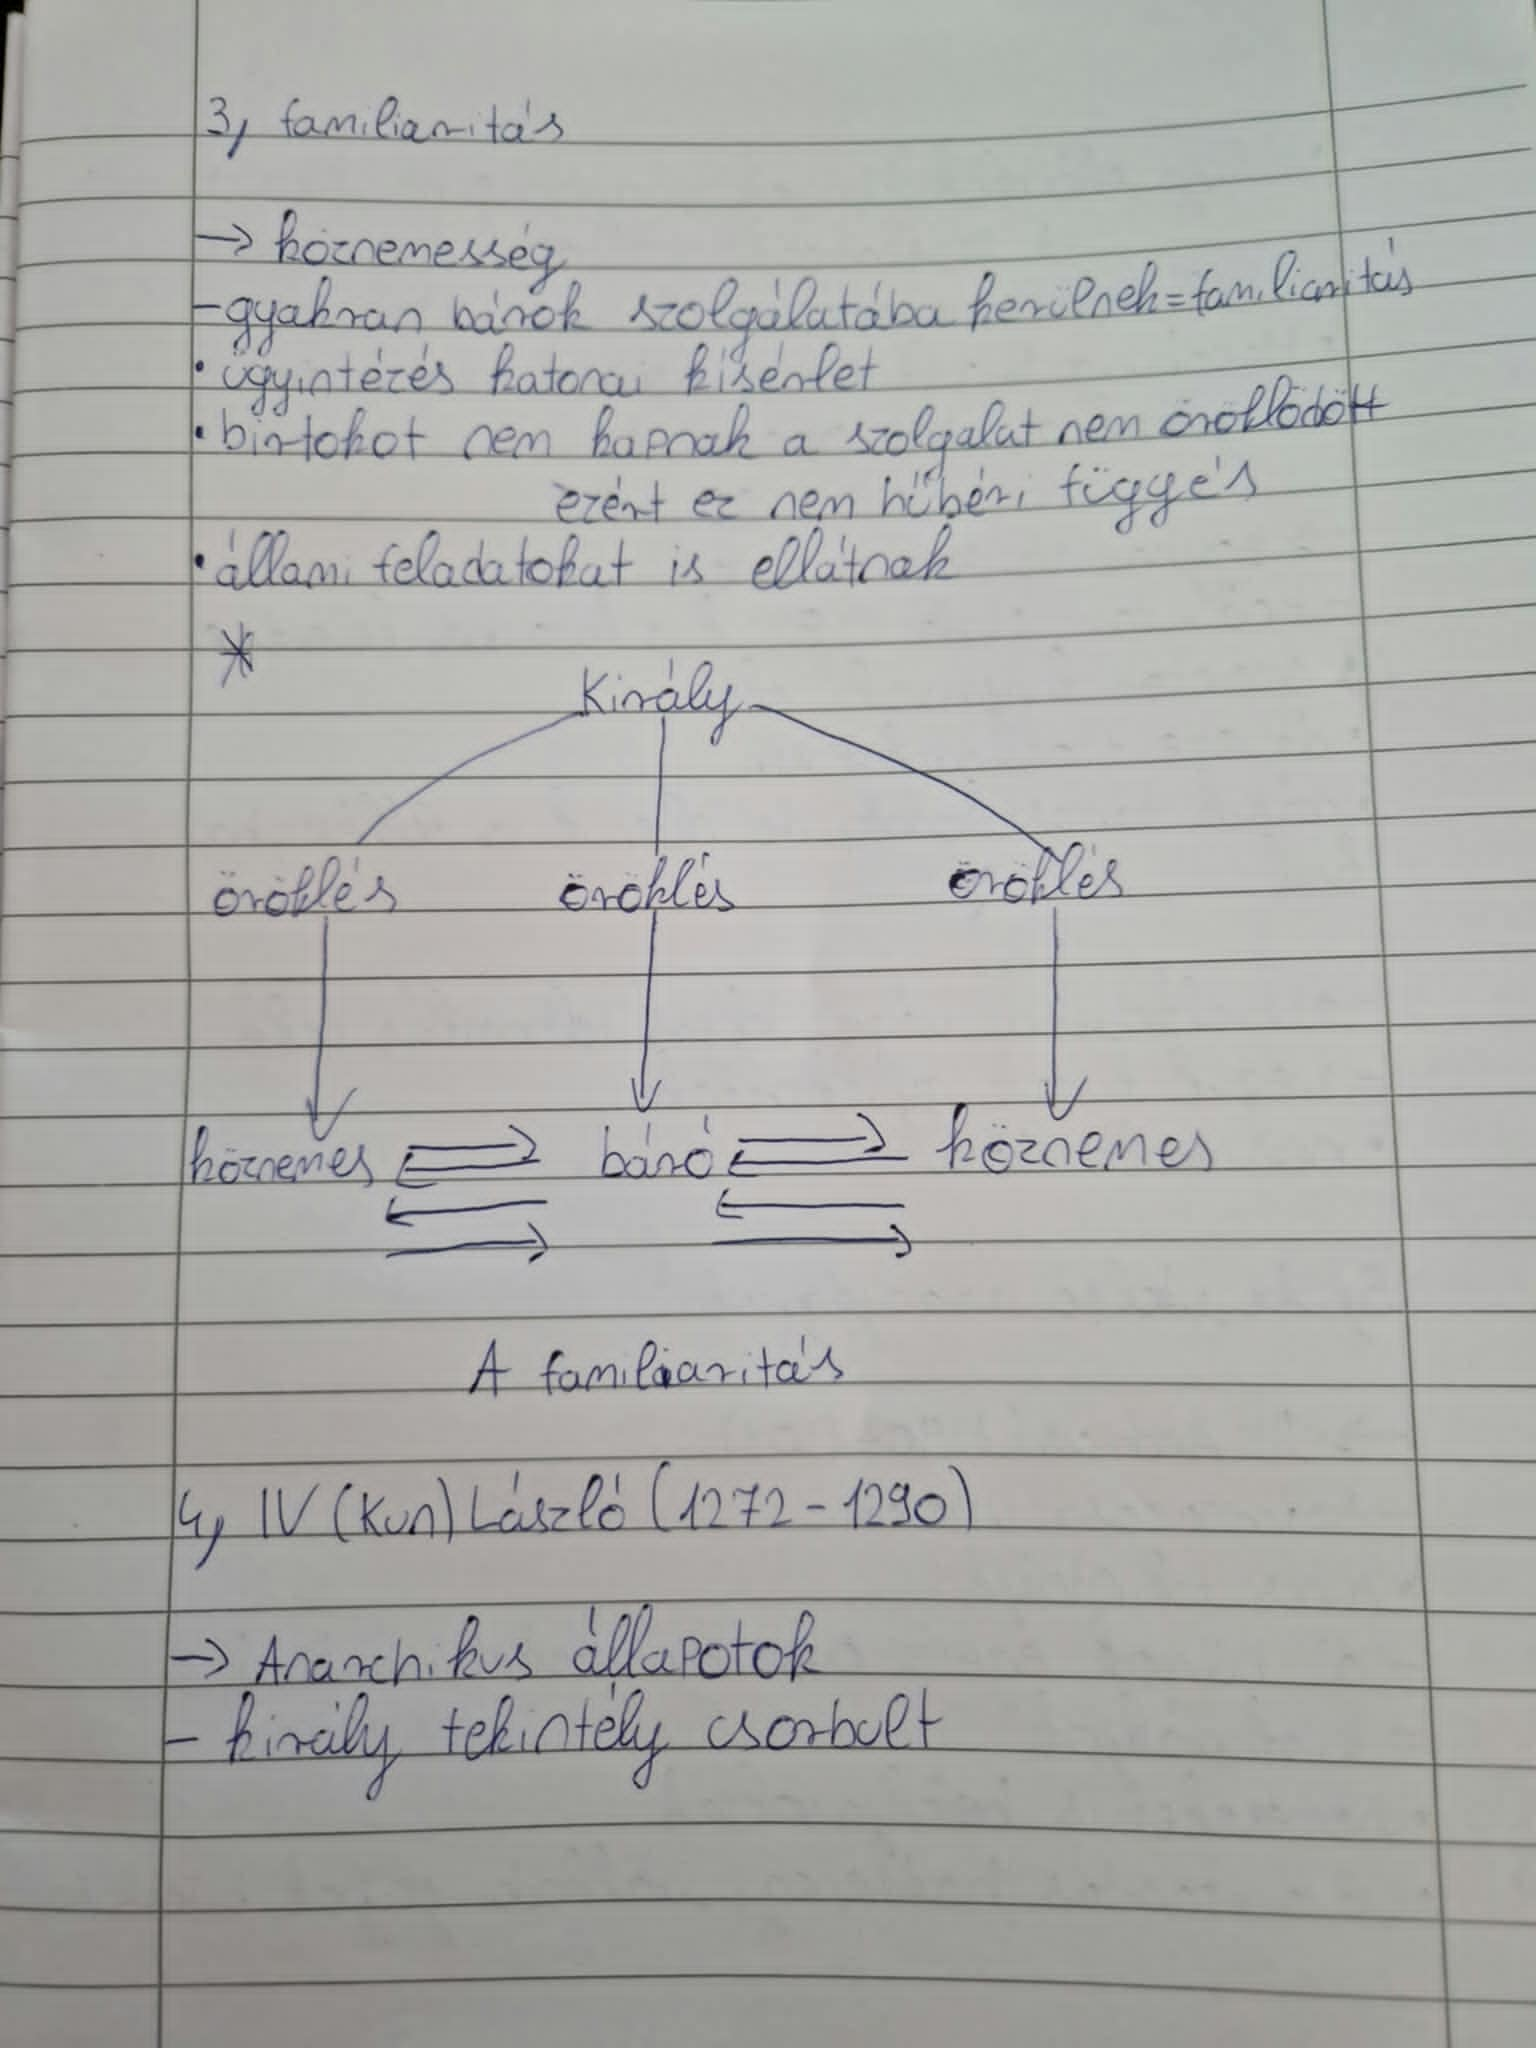 3, familiaritás
→ köznemesség
- gyakran bárok szolgálatába kerülnek = familiaritás
• ügyintézés katonai kísérlet
• birtokot nem kapnak a szolgalat nem öröklödött
ezért ez nem hűbéri függés
• állami feladatokat is ellátnak
*
Király
öröklés öröklés öröklés
köznemes báró köznemes
A familiaritás
4, IV (Kun) László (1272 - 1290)
→ Anarchikus állapotok
- király tekintély csorbult